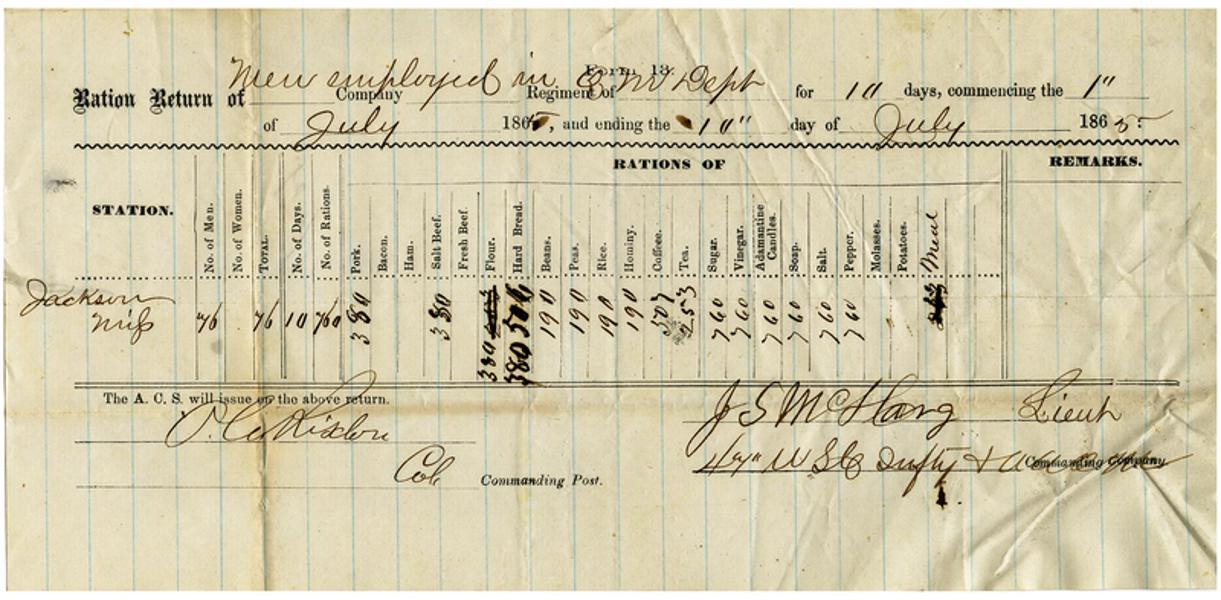 Form 13.
Ration Return of Men employed in Q M Dept Company Regiment of for 10 days, commencing the 1"
of July 1865, and ending the 10" day of July 1865.
RATIONS OF REMARKS.
STATION. No. of Men. No. of Women. TOTAL. No. of Days. No. of Rations. Pork. Bacon. Ham. Salt Beef. Fresh Beef. Flour. Hard Bread. Beans. Peas. Rice. Hominy. Coffee. Tea. Sugar. Vinegar. Adamantine Candles. Soap. Salt. Pepper. Molasses. Potatoes. Meal
Jackson
Miss 76 76 10 760 380 380 380 380 190 190 190 190 507 253 760 760 760 760 760 760
The A. C. S. will issue on the above return.
J S McHarg Lieut
47" U S C Infty &
Commanding Company
Col Commanding Post.